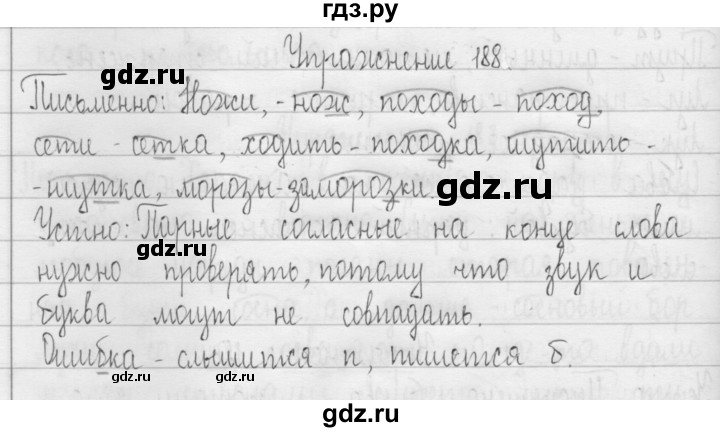 гдз.ру
Упражнение 188.
gdz.ru
gdz.ru
Письменно: Ножи, - нож, походы - поход,
сети - сетка, ходить - походка, шутить -
- шутка, морозы-заморозки.
gdz.ru
Устно: Парные согласные на конце слова
нужно проверять, потому что звук и
буква могут не совпадать.
gdz.ru
Ошибка - слышится п, пишется б.
gdz.ru
gdz.ru
gdz.ru
gdz.ru